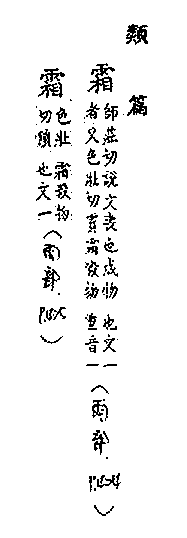 類篇
霜
師莊切說文喪也成物
者又色壯切隕霜殺物
也文一
重音一
(雨部.)
霜
色壯
切隕
霜殺物
也文一
(雨部.)